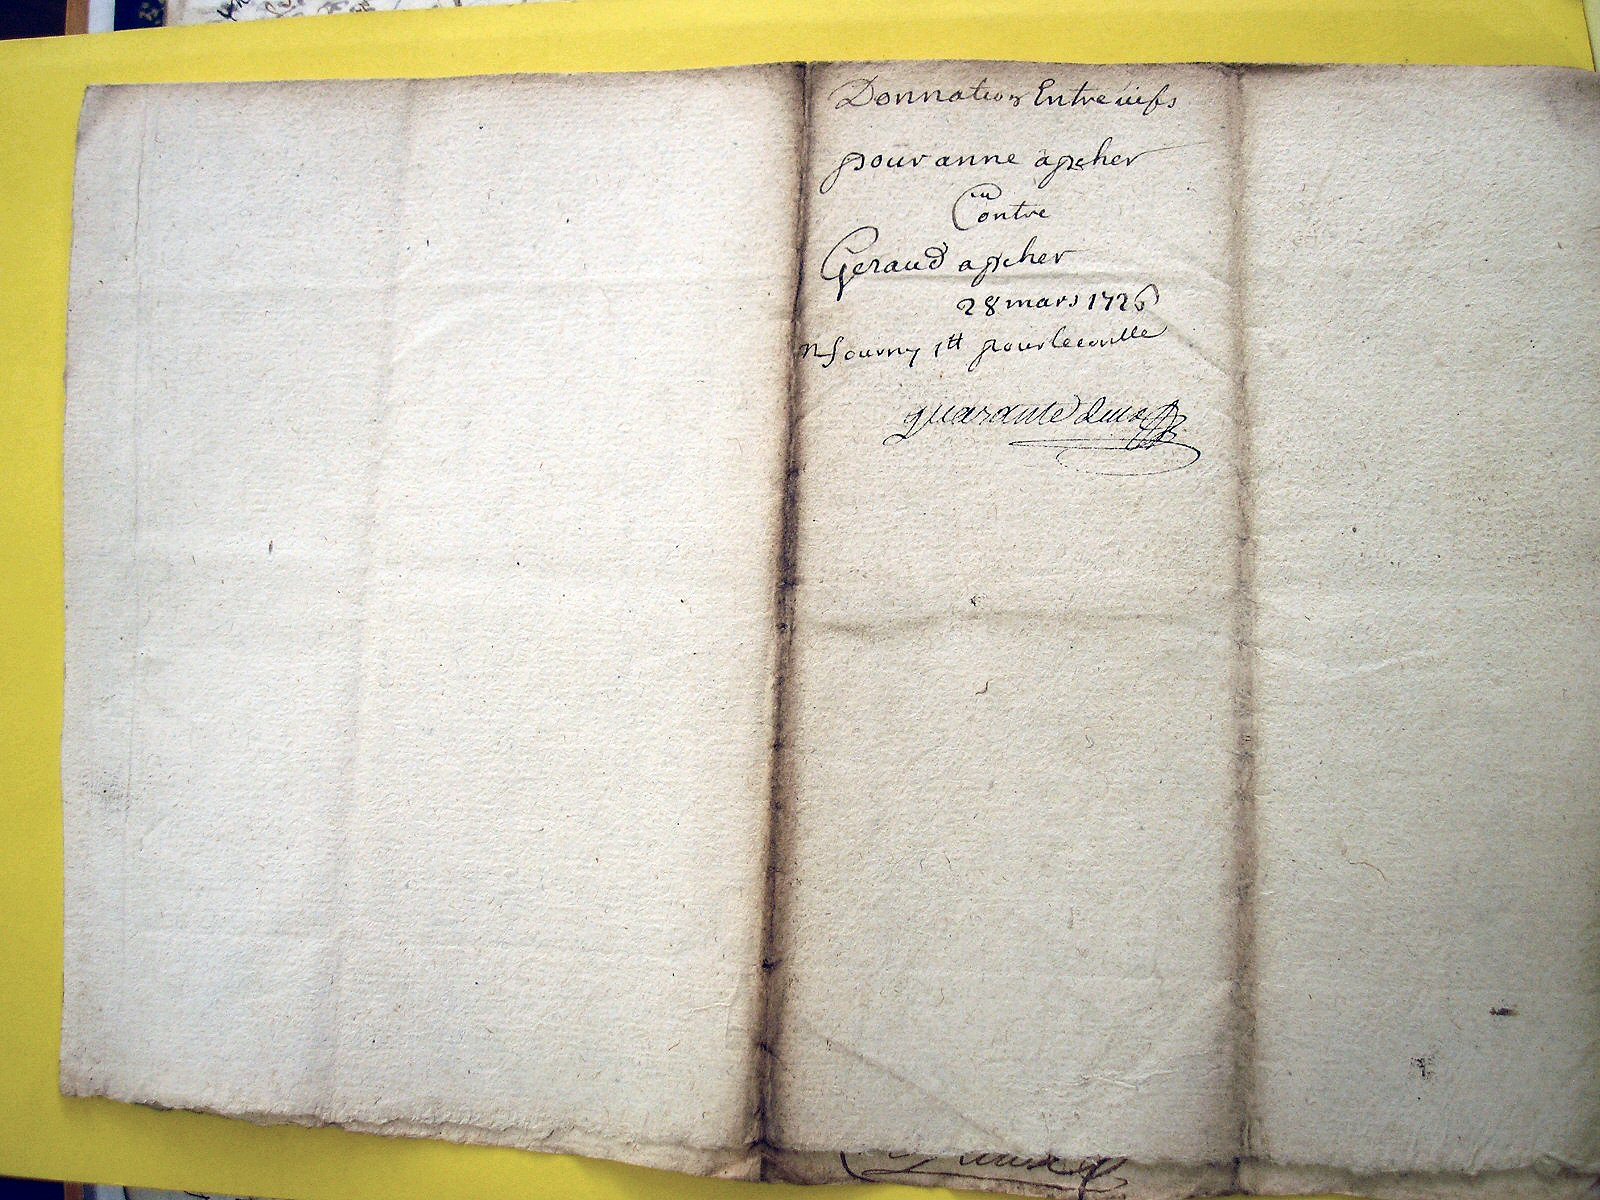 Donnation Entre uifs
pour anne apcher
Contre
Geraud apcher
28 mars 1726
pour le
quarante deux